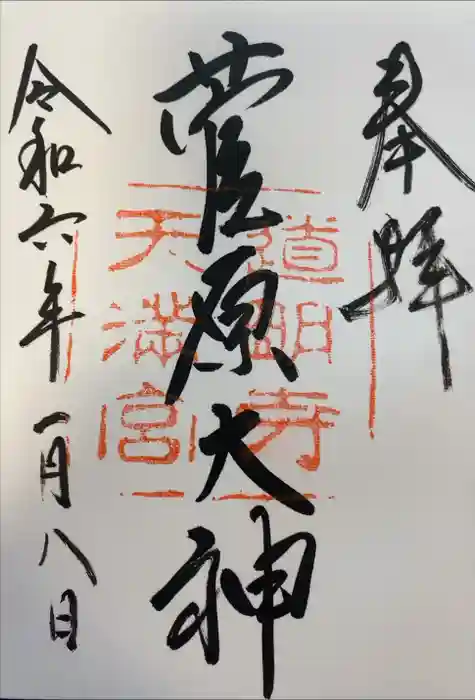 奉拝
道明寺
天満宮
菅原大神
令和六年一月八日